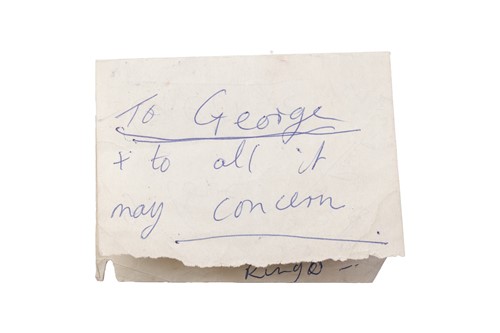 To George
+ to all it
may concern
Ringo